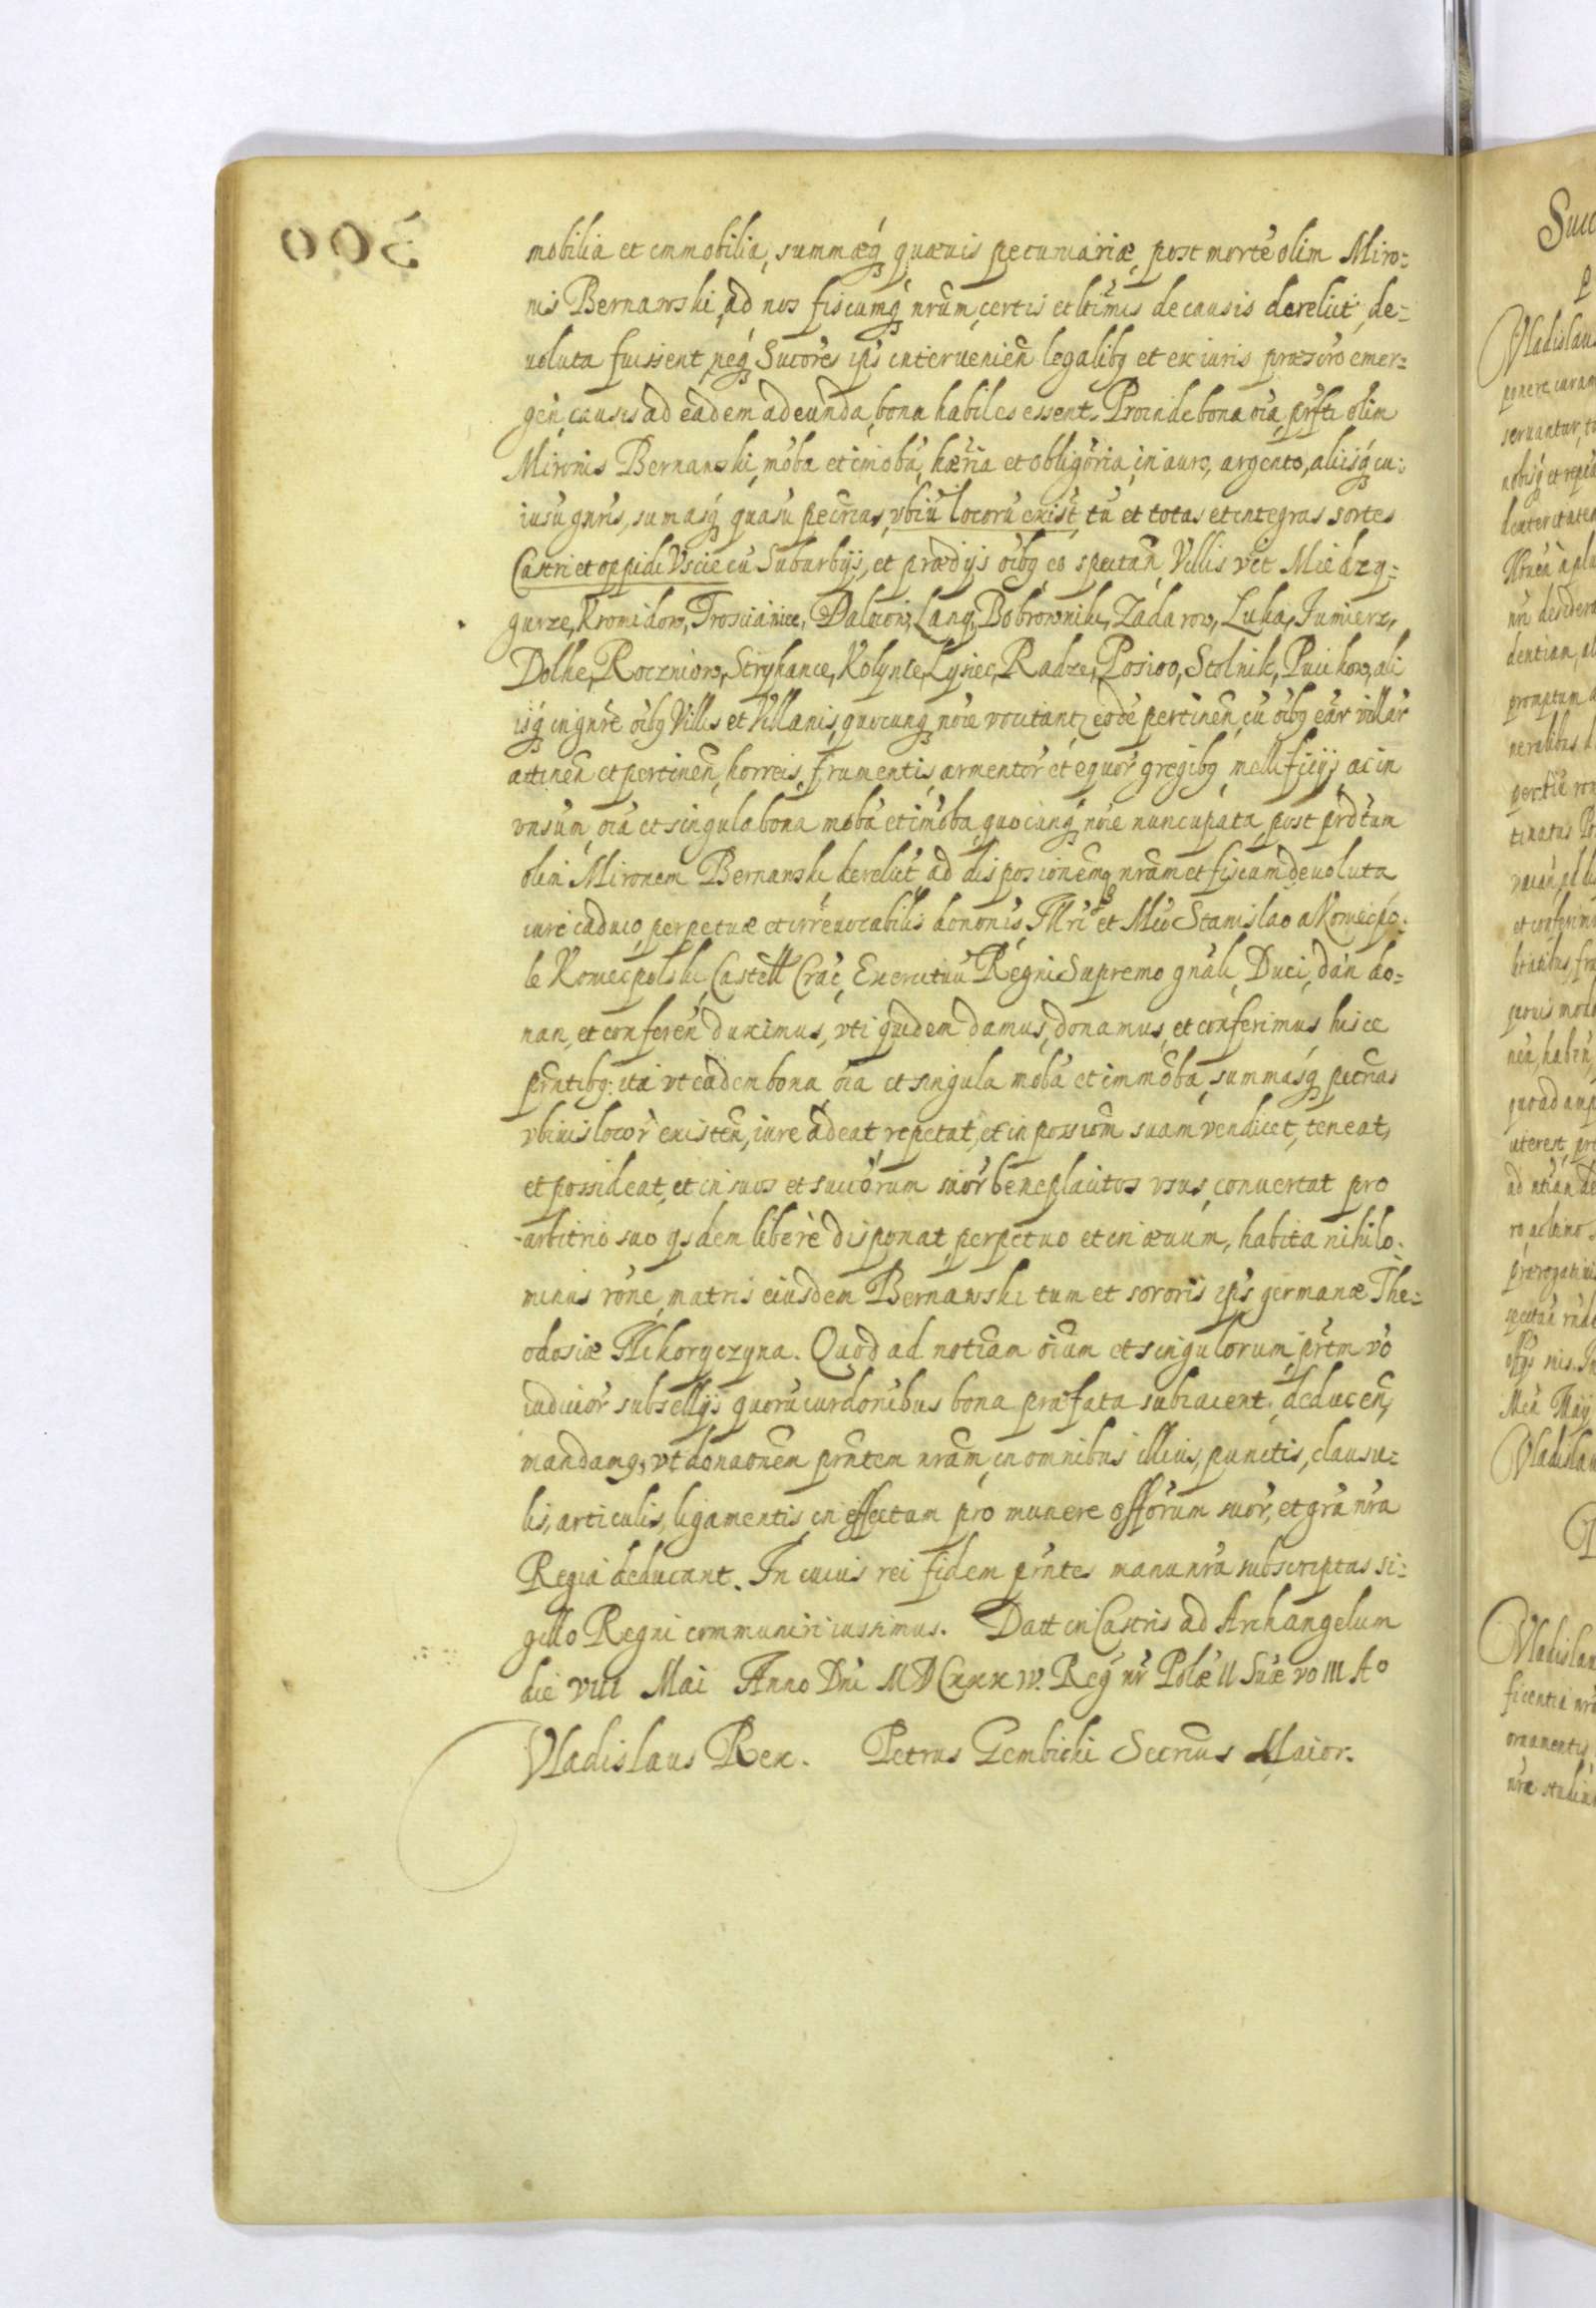 300
mobilia et immobilia, summæq́ quæuis pecuniariæ, post mortē olim Miro:
nis Bernawski, ad nos fiscumq́ nr̃um, certis et ltĩmis de causis derelict, de:
uoluta fuissent, neq́ Sucõres ip̃s interuenieñ legalibꝫ et ex iuris præscr̃o emer:
geñ causis ad eadem adeunda bona habiles essent. Proinde bona oĩa, pr̃fti olim
Mironis Bernawski, mõba et im̃obã, hæ̃ria et obligõria, in auro, argento, alijsq́ cu:
iusũ gñris, sum̃asq́ quasũ pec̃rias, vbiũ locorũ exist̃, tũ et totas et integras sortes
Castri et oppidi Vscie cũ Suburbijs, et prædijs oĩbꝫ eo spectañ, Villis vĩt Miedzy:
gurze, Kromidow, Troscianiec, Dalecow, Lany, Bobrowniki, Zadarow, Luka, Jumierz,
Dolhe, Roczniow, Stryhance, Kolynce, Lysiec, Radze, Posioo, Stolnik, Pucikow, ali
isq́ in gñre oĩbꝫ Villis et Villanis, quocunq́ noĩe vocitant, eodē pertineñ, cũ oĩbꝫ eãr villãr
attineñ et pertineñ, horreis, frumentis, armentor̃ et equor̃ gregibꝫ, mellificijs, ac in
vnsum, oĩa et singula bona mobã et im̃oba, quocunq́ noĩe nuncupata, post prd̃tum
olim Mironem Bernawski derelict, ad disposionẽmq́ nr̃am et fiscum deuoluta
iure caduco, perpetuæ et irreuocabilis donon̄is, Illr̃i et Mc̃o Stanislao a Koniecpo:
le Koniecpolski, Castell Crac̃, Exercituũ Regni Supremo gñali Duci, dañ do:
nañ, et conferen̄ duximus, vti quidem damus, donamus, et conferimus hisce
prñtibꝫ: ita vt eadem bona, oĩa et singula mõbã et immõbã, summasq́ pec̃rias
vbiuis locor̃ existeñ, iure adeat, repetat, et in possiom̃ suam vendicet, teneat,
et possideat, et in suos et succõrum suor̃ beneplacitos vsus, conuertat pro
arbitrio suo qsdem liberè disponat, perpetuo et in æuum, habita nihilo:
minus rõne, matris eiusdem Bernawski tum et sororis ip̃s germanæ The:
odosiæ Hrehoryczyna. Quod ad notĩam oĩum et singulorum, pr̃tm võ
iudicior̃ subsellijs quorũ iurdon̄ibus bona præfata subiacent, deduceñ,
mandamꝫ, vt donaon̄em prñtem nr̃am, in omnibus illius, punctis, clausu:
lis, articulis, ligamentis, in effectum pro munere offõrum suor̃, et grã nr̃a
Regia deducant. In cuius rei fidem prñtes manu nr̃a subscriptas si:
gillo Regni communiri iussimus. Datt in Castris ad Archangelum
die VIII Mai Anno Dñi MDCXXXIV. Reg̃ nr̃ Polæ̃ II Suæ̃ vo III Aº
Vladislaus Rex. Petrus Gembicki Secr̃ius Maior.